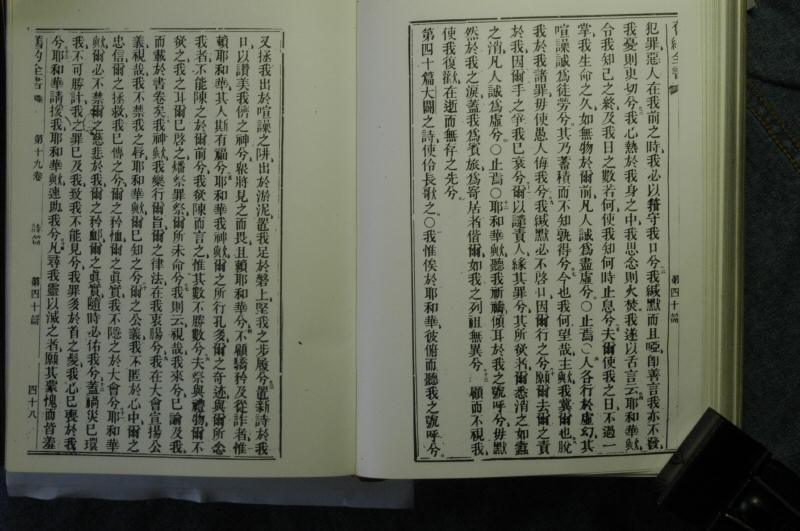 舊約全書
犯罪惡人在我前之時我必以藉守我口兮我緘默而且啞卽善言我亦不發
我憂則更切兮我心熱於我身之中我思念則火焚我遂以舌言云耶和華歟
令我知己之終及我日之數若何使我知何時止息兮夫爾使我之日不過一
掌我生命之久如無物於爾前凡人誠爲盡虛兮〇止焉〇人各行於虛幻其
喧譟誠爲徒勞兮其乃蓄積而不知孰得兮今也我何望哉主歟我冀爾也脫
我於我諸罪毋使愚人侮我兮我緘默必不啓口因爾行之兮願爾去爾之責
於我因爾手之爭我已衰兮爾以譴責人緣其罪兮其所欲者爾悉消之如蠹
之消凡人誠爲虛兮〇止焉〇耶和華歟聽我祈禱傾耳於我之號呼兮毋默
然於我之淚蓋我爲賓旅爲寄居者偕爾如我之列祖無異兮 顧而不視我
使我復歡在逝而無存之先兮
第四十篇大闢之詩使伶長歌之〇我惟俟於耶和華彼俯而聽我之號呼兮
第四十篇
又拯我出於喧譟之阱出於淤泥置我足於磐上堅我之步履兮置新詩於我
口以讚美我儕之神兮衆將見之而畏且賴耶和華兮不顧驕矜及從詐者惟
賴耶和華其人斯有福兮耶和華我神歟爾之所行孔多爾之奇迹與爾所念
我者不能陳之於爾前兮我欲陳而言之惟其數不勝數兮夫祭與禮物爾不
欲之我之耳爾已啓之燔祭罪祭爾所未命兮我則云視哉我來兮已論及我
而載於書卷矣我神歟我樂行爾旨爾之律法在我衷腸兮我在大會宣揚公
義視哉我不禁我之脣耶和華歟爾已知之兮爾之公義我不匿於心中爾之
忠信爾之拯救我已傳之兮爾之矜恤爾之眞實我不隱之於大會兮耶和華
歟爾必不禁爾之慈悲於我爾之矜恤爾之眞實隨時必佑我兮蓋禍災已環
我不可勝計我之罪已及我致我不能見兮我罪多於首之髮我心已喪於我
兮耶和華請援我耶和華歟速助我兮凡尋我靈以滅之者願其蒙愧而皆羞
舊約全書 第十九卷 詩篇 第四十篇 四十八